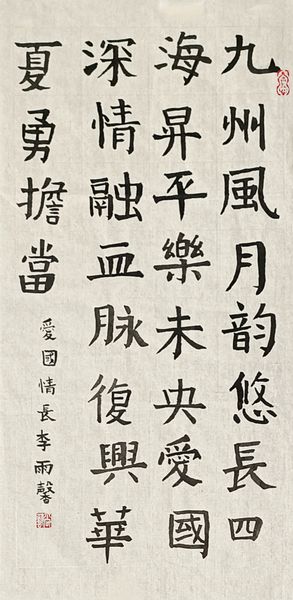 九州風月韵悠長四
海昇平樂未央愛國
深情融血脉復興華
夏勇擔當
愛國情長李雨馨